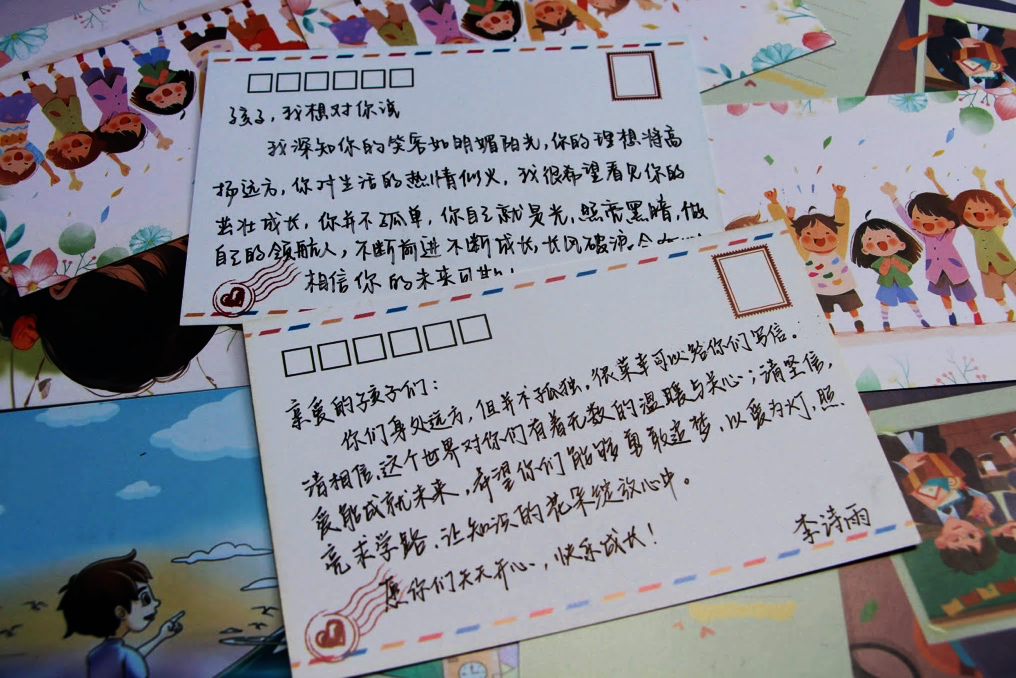 孩子,我想对你说
我深知你的笑容如明媚阳光,你的理想将高
扬远方,你对生活的热情似火,我很希望看见你的
茁壮成长,你并不孤单,你自己就是光,照亮黑暗,做
自己的领航人,不断前进不断成长,长风破浪
相信你的未来可
亲爱的孩子们:
你们身处远方,但并不孤独。很荣幸可以给你们写信。
请相信,这个世界对你们有着无数的温暖与关心;请坚信,
爱能成就未来,希望你们能够勇敢追梦,以爱为灯,照
亮求学路,让知识的花朵绽放心中。
愿你们天天开心,快乐成长!
李诗雨